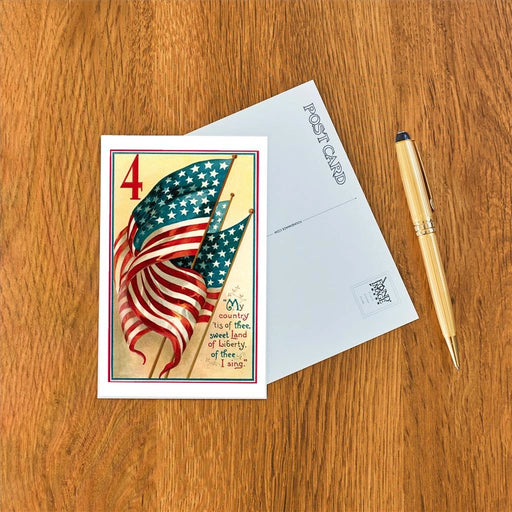 4
"My
country
'tis of thee,
sweet Land
of Liberty,
of thee
I sing."
POST CARD